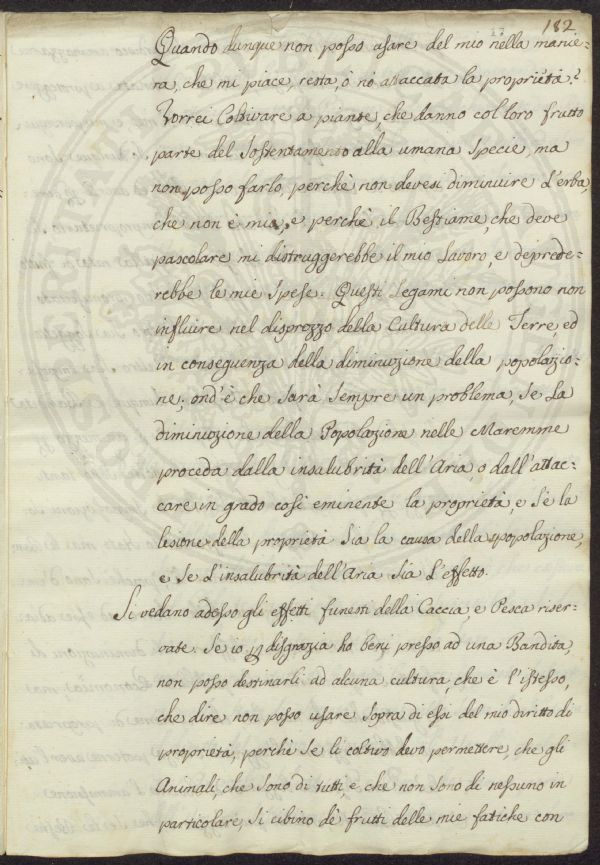 182
Quando dunque non posso usare del mio nella manie-
ra, che mi piace, resta, ò nò attaccata la proprietà?
Vorrei Coltivare a piante, che danno col loro frutto
parte del Sostentamento alla umana Specie, ma
non posso farlo, perchè non devesi diminuire L'erba,
che non è mia, e perchè il Bestiame, che deve
pascolare mi distruggerebbe il mio Lavoro, e deprede-
rebbe le mie Spese. Questi Legami non possono non
influire nel disprezzo della Cultura delle Terre, ed
in conseguenza della diminuzione della popolazio-
ne; ond'è che sarà sempre un problema, Se La
diminuzione della Popolazione nelle Maremme
proceda dalla insalubrità dell'Aria, o dall'attac-
care in grado così eminente la proprietà, e Se la
lesione della proprietà Sia la causa della spopolazione,
e Se L'insalubrità dell'Aria Sia L'effetto.
Si vedano adesso gli effetti funesti della Caccia, e Pesca riser-
vate. Se io p disgrazia ho beni presso ad una Bandita,
non posso destinarli ad alcuna cultura, che è l'istesso,
che dire non posso usare sopra di essi del mio diritto di
proprietà, perchè se li coltivo devo permettere, che gli
Animali, che sono di tutti, e che non sono di nessuno in
particolare, Si cibino de' frutti delle mie fatiche con